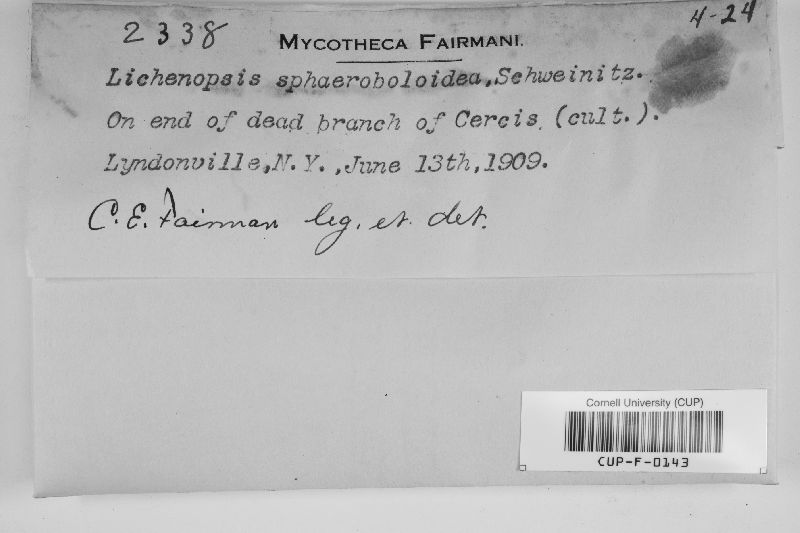 2338 MYCOTHECA FAIRMANI. 4-24
Lichenopsis sphaeroboloidea, Schweinitz.
On end of dead branch of Cercis, (cult.).
Lyndonville, N. Y., June 13th, 1909.
C. E. Fairman leg. et det.
Cornell University (CUP)
CUP-F-0143